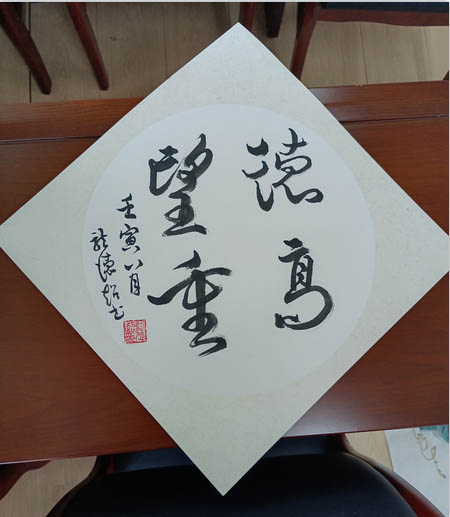 德高
望重
壬寅八月